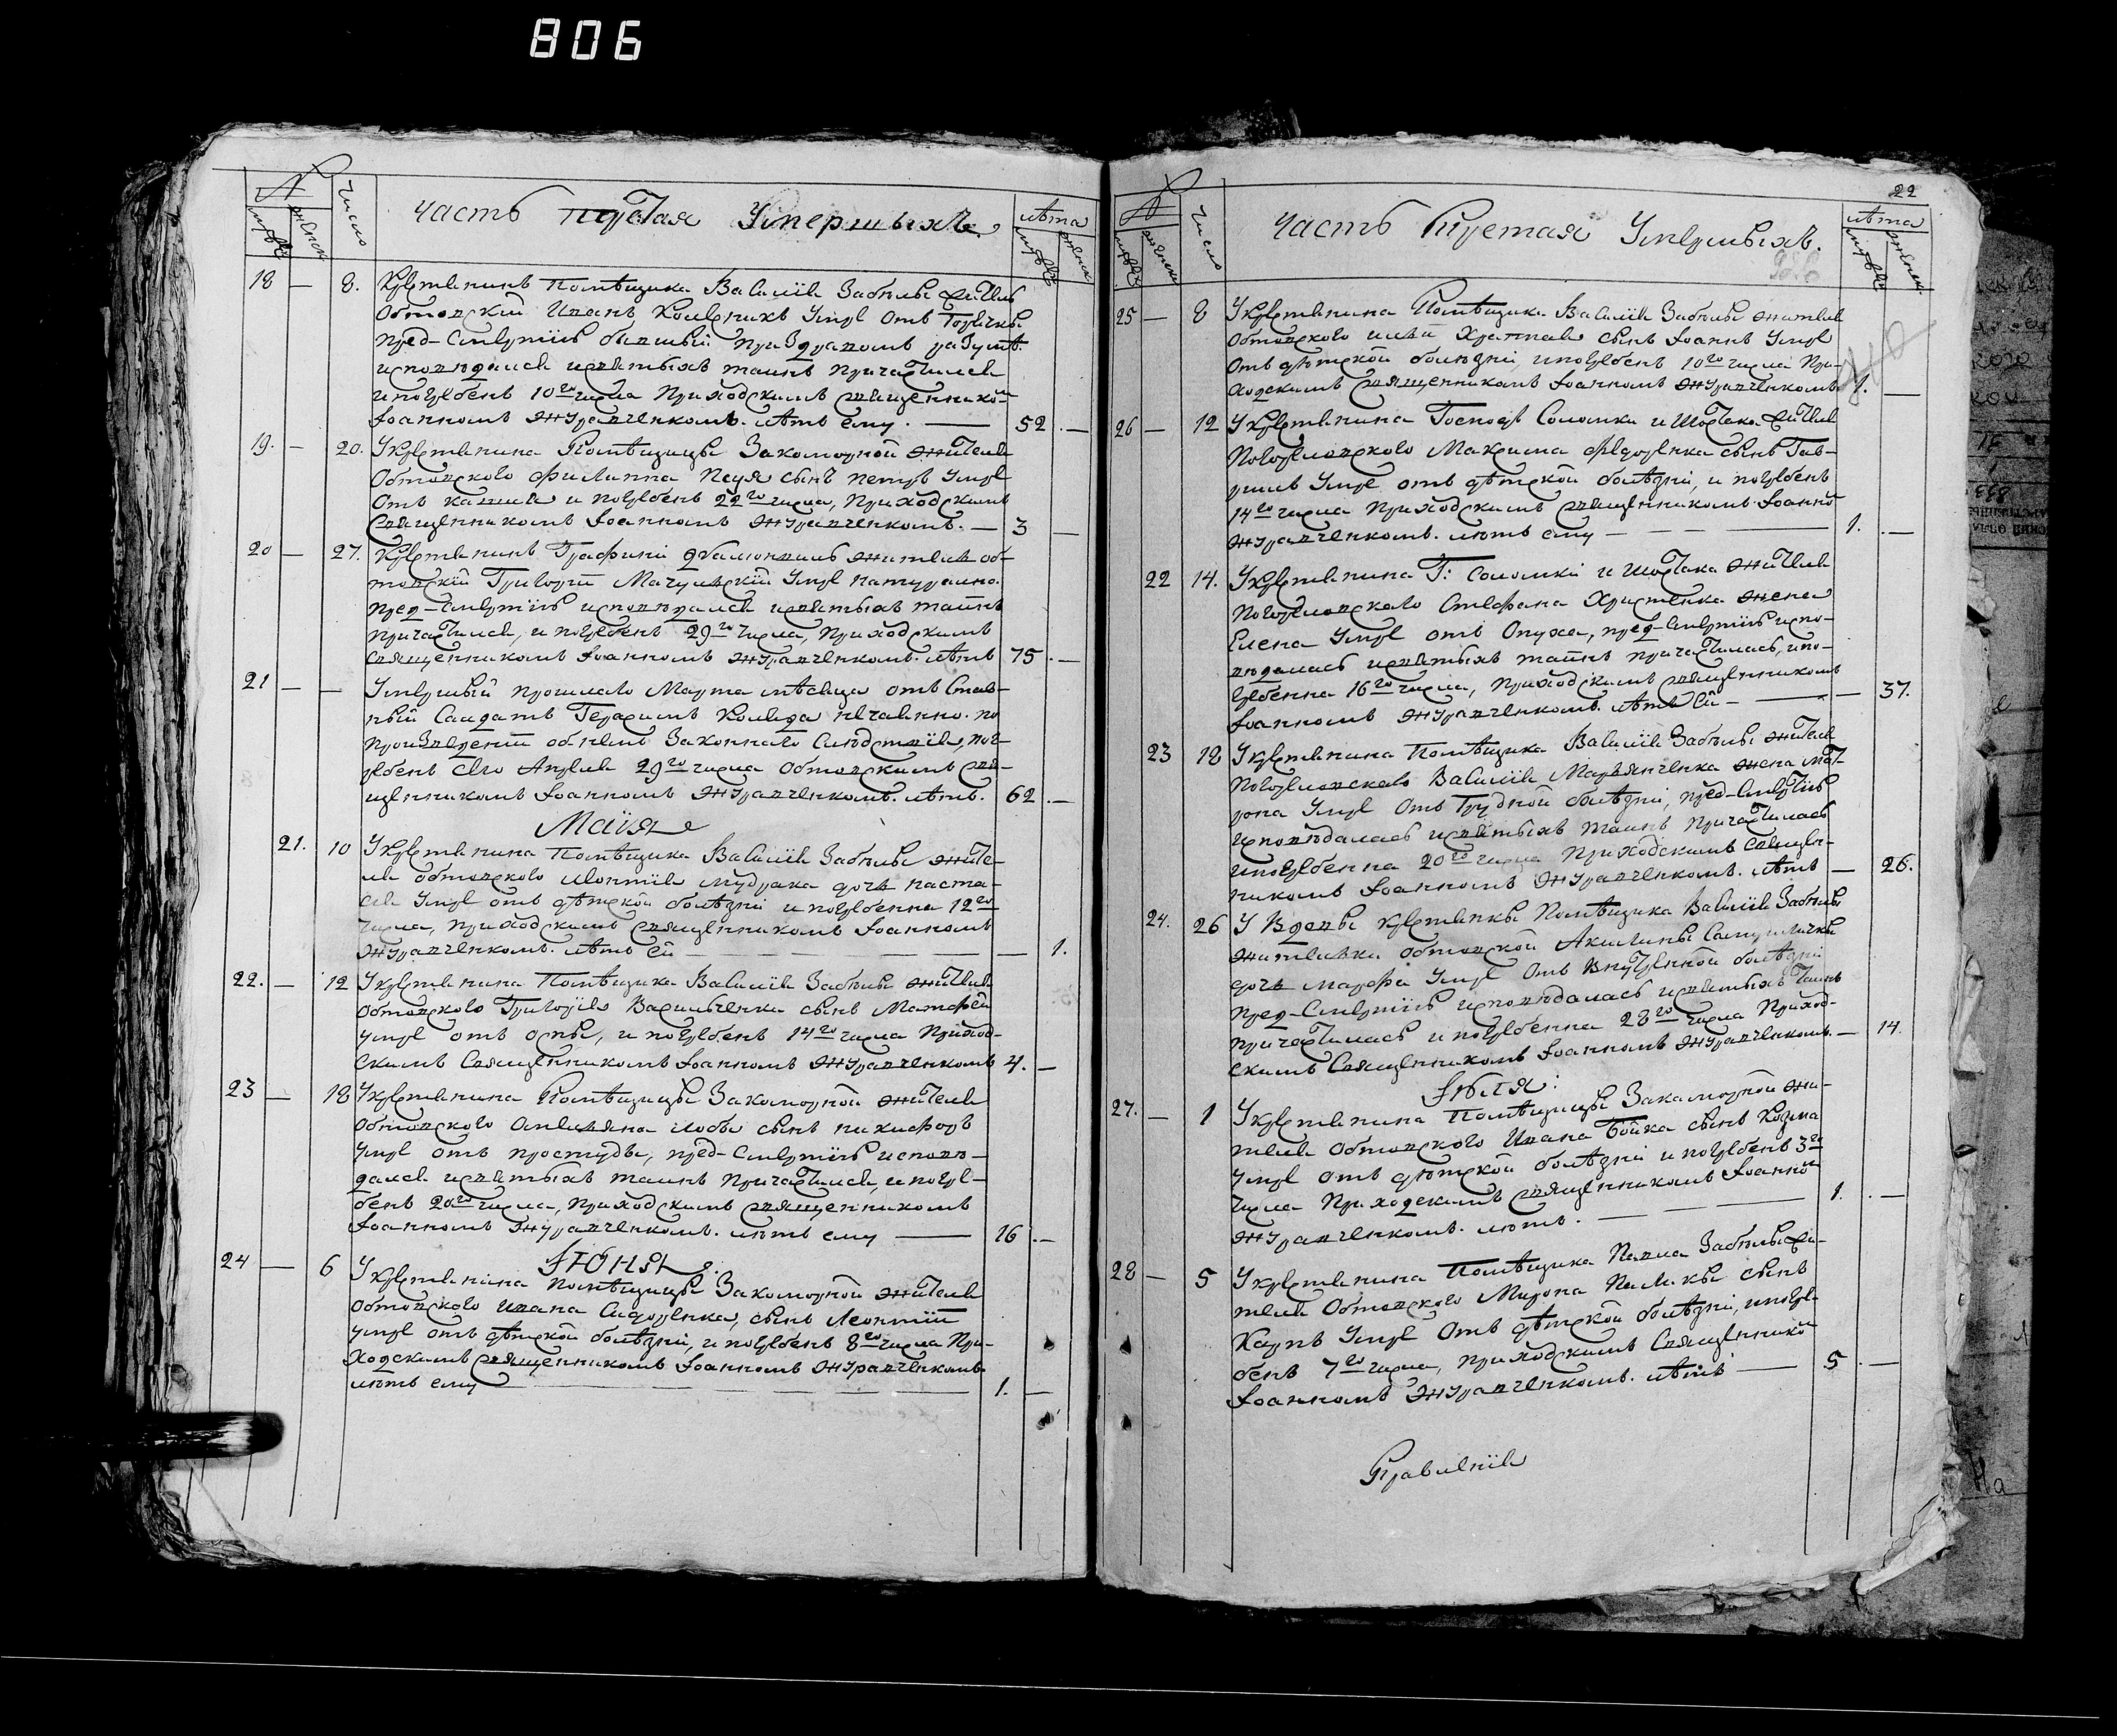 806
№ Число часть третая Умершыхъ лѣта
18 — 8. Крестянинъ помѣщика Василія Забѣлы житель
обтовскій Иванъ Колесникъ Умре отъ горячки
пред-смертію бывшій при здравомъ разумѣ
исповѣдался исвятыхъ таинъ причастился
ипогребенъ 10го числа приходскимъ священнико
Іоанномъ Журавченкомъ. лѣтъ ему. — 52. —
19. — 20. Укрестянина помѣщицы Закоморной жителя
обтовского филиппа сынъ петръ Умре
отъ кашля и погребенъ 22го числа, приходскимъ
священникомъ Іоанномъ Журавченкомъ. — 3 —
20 — 27. Крестянинъ Графини жителъ об-
товскій Григорій Умре натурално.
пред-смертію исповѣдался исвятыхъ таинъ
причастился, и погребенъ 29го числа, приходскимъ
священникомъ Іоанномъ Журавченкомъ. лѣтъ 75. —
21 — — Умершый прошлаго Марта мѣсяца отъ став-
ный Салдатъ Герасимъ Коляда нечаянно. по
произведеніи обнемъ законнаго слѣдствія, пог-
ребенъ сего Апреля 29го числа обтовскимъ свя-
щенникомъ Іоанномъ Журавченкомъ. лѣтъ. 62. —
Маія
21. 10 Укрестянина помѣщика Василія Забѣлы жите-
ля обтовского леонтія мудрака дочь наста-
ся Умре отъ дѣтской болѣзни и погребенна 12го
числа, приходскимъ священникомъ Іоанномъ
Журавченкомъ. лѣтъ ей — — 1.
22. — 12 Укрестянина помѣщика Василія Забѣлы жителя
обтовского Григорія Василченка сынъ Матфей
умре отъ оспы, и погребенъ 14го числа приход-
скимъ священникомъ Іоанномъ Журавченкомъ 4. —
23 — 18 Укрестянина помѣщицы Закоморной жителя
обтовского сынъ никифоръ
умре отъ простуды, пред-смертію исповѣ-
дался исвятыхъ таинъ причастился, и погре-
бенъ 20го числа, приходскимъ священникомъ
Іоанномъ Журавченкомъ. лѣтъ ему — 16. —
Іюня
24 — 6 Укрестянина помѣщицы Закоморной жителя
обтовского ивана Сидоренка, сынъ Леонтій
умре отъ дѣтской болѣзни, и погребенъ 8го числа при-
ходскимъ священникомъ Іоанномъ Журавченкомъ
лѣтъ ему — 1. —
22
№ Число часть третая Умершыхъ. лѣта
25 — 8 Укрестянина помѣщика Василія Забѣлы жителя
обтовского сынъ Іоаннъ Умре
отъ дѣтской болѣзни, ипогребенъ 10го числа при-
ходскимъ священникомъ Іоанномъ Журавченкомъ 1. —
26 — 12 Укрестянина Господъ Соломки и Шостака жителя
погорѣловского Максима федоренка сынъ Гав-
риилъ Умре отъ дѣтской болѣзни, и погребенъ
14го числа приходскимъ священникомъ Іоанно
Журавченкомъ. лѣтъ ему — 1. —
22 14. Укрестянина Г: Соломки и Шостака жителя
погорѣловскаго Стефана Христенка жена
Елена Умре отъ опуха, пред-смертію испо-
вѣдалась исвятыхъ таинъ причастилась, ипо-
гребенна 16го числа, приходскимъ священникомъ
Іоанномъ Журавченкомъ. лѣтъ ей — — 37.
23 18 Укрестянина помѣщика Василія Забѣлы жителя
погорѣловскаго Василія Марянченка жена мат-
рона Умре отъ грудной болѣзни, пред-смертію
исповѣдалась исвятыхъ таинъ причастилась
ипогребенна 20го числа приходскимъ священ-
никомъ Іоанномъ Журавченкомъ. лѣтъ — 26.
24. 26 У Вдовы крестянки помѣщика Василія Забѣлы
жителки обтовской Акилины
дочь марфа Умре отъ внутренной болѣзни
пред-смертію исповѣдалась исвятыхъ таинъ
причастилась и погребенна 28го числа приход-
скимъ священникомъ Іоанномъ Журавченкомъ. — 14.
Іюля:
27. — 1 Укрестянина помѣщицы Закоморной жи-
теля обтовского Ивана бойка сынъ Козма
умре отъ дѣтской болѣзни и погребенъ 3го
числа приходскимъ священникомъ Іоанно
Журавченкомъ. лѣтъ. — 1. —
28 — 5 Укрестянина помѣщика Павла Забѣлы жи-
теля обтовского Мирона сынъ
Карпъ Умре отъ дѣтской болѣзни, ипогре-
бенъ 7го числа, приходскимъ священнико
Іоанномъ Журавченкомъ. лѣтъ — 5. —